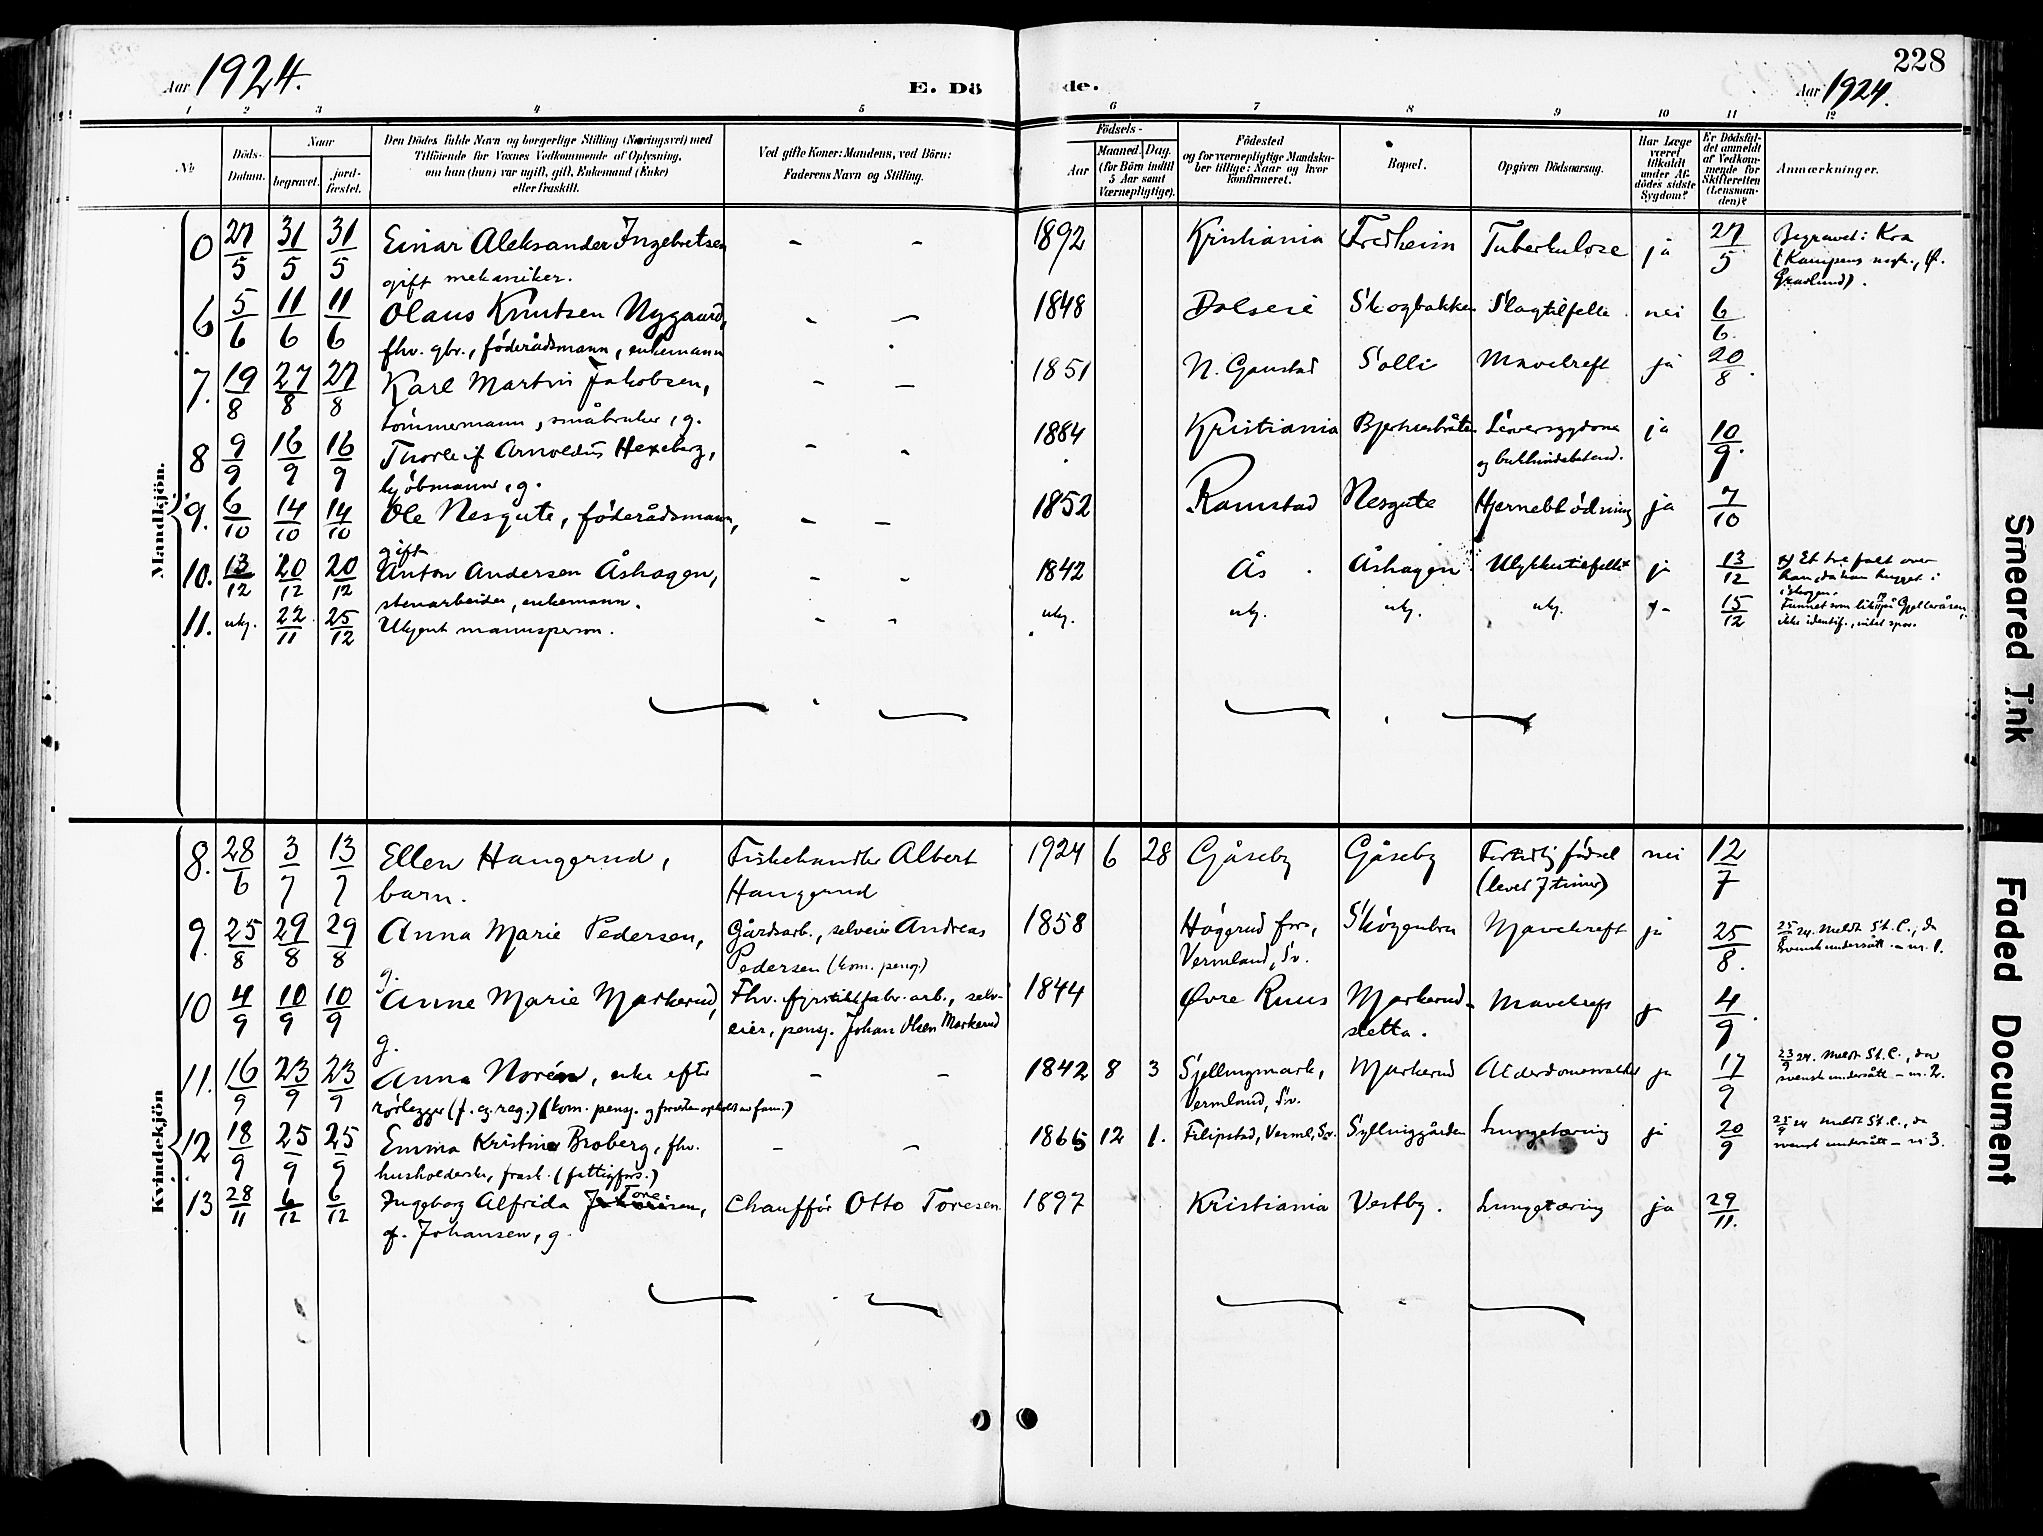 228
Aar 1924.
E. Døde.
Aar 1924.
1 2 3 4 5 6 7 8 9 10 11 12
No
Döds-
Datum.
Naar
begravet.
jord-
fæstet.
Den Dödes fulde Navn og borgerlige Stilling (Næringsvei) med
Tilföiende for Voxnes Vedkommende af Oplysning,
om han (hun) var ugift, gift, Enkemand (Enke)
eller fraskilt.
Ved gifte Koner: Mandens, ved Börn:
Faderens Navn og Stilling.
Födsels-
Aar
Maaned. Dag.
(for Börn indtil
5 Aar samt
Værnepligtige).
Födested
og for værnepligtige Mandska-
ber tillige: Naar og hvor
konfirmeret.
Bopæl.
Opgiven Dödsaarsag.
Har Læge
været
tilkaldt
under Af-
dödes sidste
Sygdom?
Er Dödsfal-
det anmeldt
af Vedkom-
mende for
Skifteretten
(Lensman-
den)?
Anmærkninger.
Mandkjön.
0 27/5 31/5 31/5 Einar Aleksander Ingebretsen - - 1892 Kristiania Fredheim Tuberkulose ja 27/5 Begravet i Kra
gift mekaniker.
6 5/6 11/6 11/6 Olaus Knutsen Nygaard, - - 1848 Dalseie Skogbakken Slagtilfelle nei 6/6.
fhv. gbr., föderådsmann, enkemann
7. 19/8 27/8 27/8 Karl Martin Jakobsen, - - 1851 N. Gaustad Solli Mavekreft ja 20/8.
tömmermann, småbruker, g.
8 9/9 16/9 16/9 Thorleif Arnoldus Hexeberg, - - 1884 Kristiania Leversygdom ja 10/9.
kjöbmann, g.
9. 6/10 14/10 14/10 Ole Nesgute, föderådsmann, - - 1852 Ramstad Nesgute Hjerneblödning ja 7/10
gift
10. 13/12 20/12 20/12 Anton Andersen Åshagen, - - 1842 Ås Åshagen Ulykkestilfelle x ja 13/12 x) Et tre falt over
ham, da han hugget i
stenarbeider, enkemann. skogen.
11. ukj. 22/11 25/12 Ukjent mannsperson. - - ukj. ukj. ukj. ukj. - 15/12 Funnet som lik på Gjelleråsen,
ikke identif., intet spor.
Kvindekjön
8. 28/6 3/7 13/7 Ellen Haugerud, Fiskehandler Albert 1924 6 28 Gåseby Gåseby Fortidlig födsel nei 12/7
barn. Haugerud (levet 7 timer)
9. 25/8 29/8 29/8 Anna Marie Pedersen, Gårdsarb., selveier Andreas 1858 Högerud fors., Skogenbru Mavekreft ja 25/8. 25/8 24. Meldt St. C., da
g. Pedersen (kom. peng.) Vermland, Sv. svensk undersått - nr. 1.
10 4/9 10/9 10/9 Anne Marie Markerud, Fhv. fyrstikkfabr. arb., selv- 1844 Øvre Ruus Markerud- Mavekreft ja 4/9.
g. eier, pensj. Johan Olsen Markerud sletta.
11. 16/9 23/9 23/9 Anna Norén, enke efter - - 1842 8 3 Sjellungmark, Markerud Alderdomssvakhet ja 17/9 23/9 24. Meldt St. C., da
rörlegger (f. eg. reg.) (kom. pensj. og forresten ophold av fam.) Vermland, Sv. svensk undersått - nr. 2.
12 18/9 25/9 25/9 Emma Kristina Broberg, fhv. - - 1865 12 1. Filipstad, Verml., Sv. Syllinggården Lungetæring ja 20/9 25/9 24 Meldt St. C., da
husholderske, frask. (fattigfors.) svensk undersått - nr 3.
13 28/11 6/12 6/12 Ingeborg Alfrida Toresen, Chauffør Otto Toresen 1897 Kristiania Vestby. Lungetæring ja 29/11.
f. Johansen, g.
Smeared Ink
Faded Document